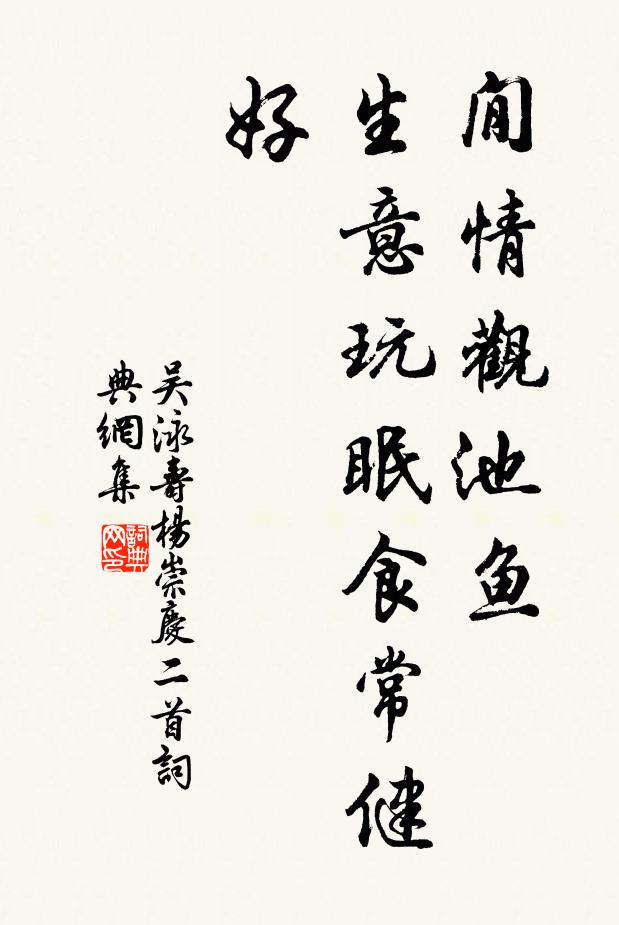 闲情觀池魚
生意玩眠食常健
好
吴泳壽楊崇慶二首詞
典網集
詞典
网印